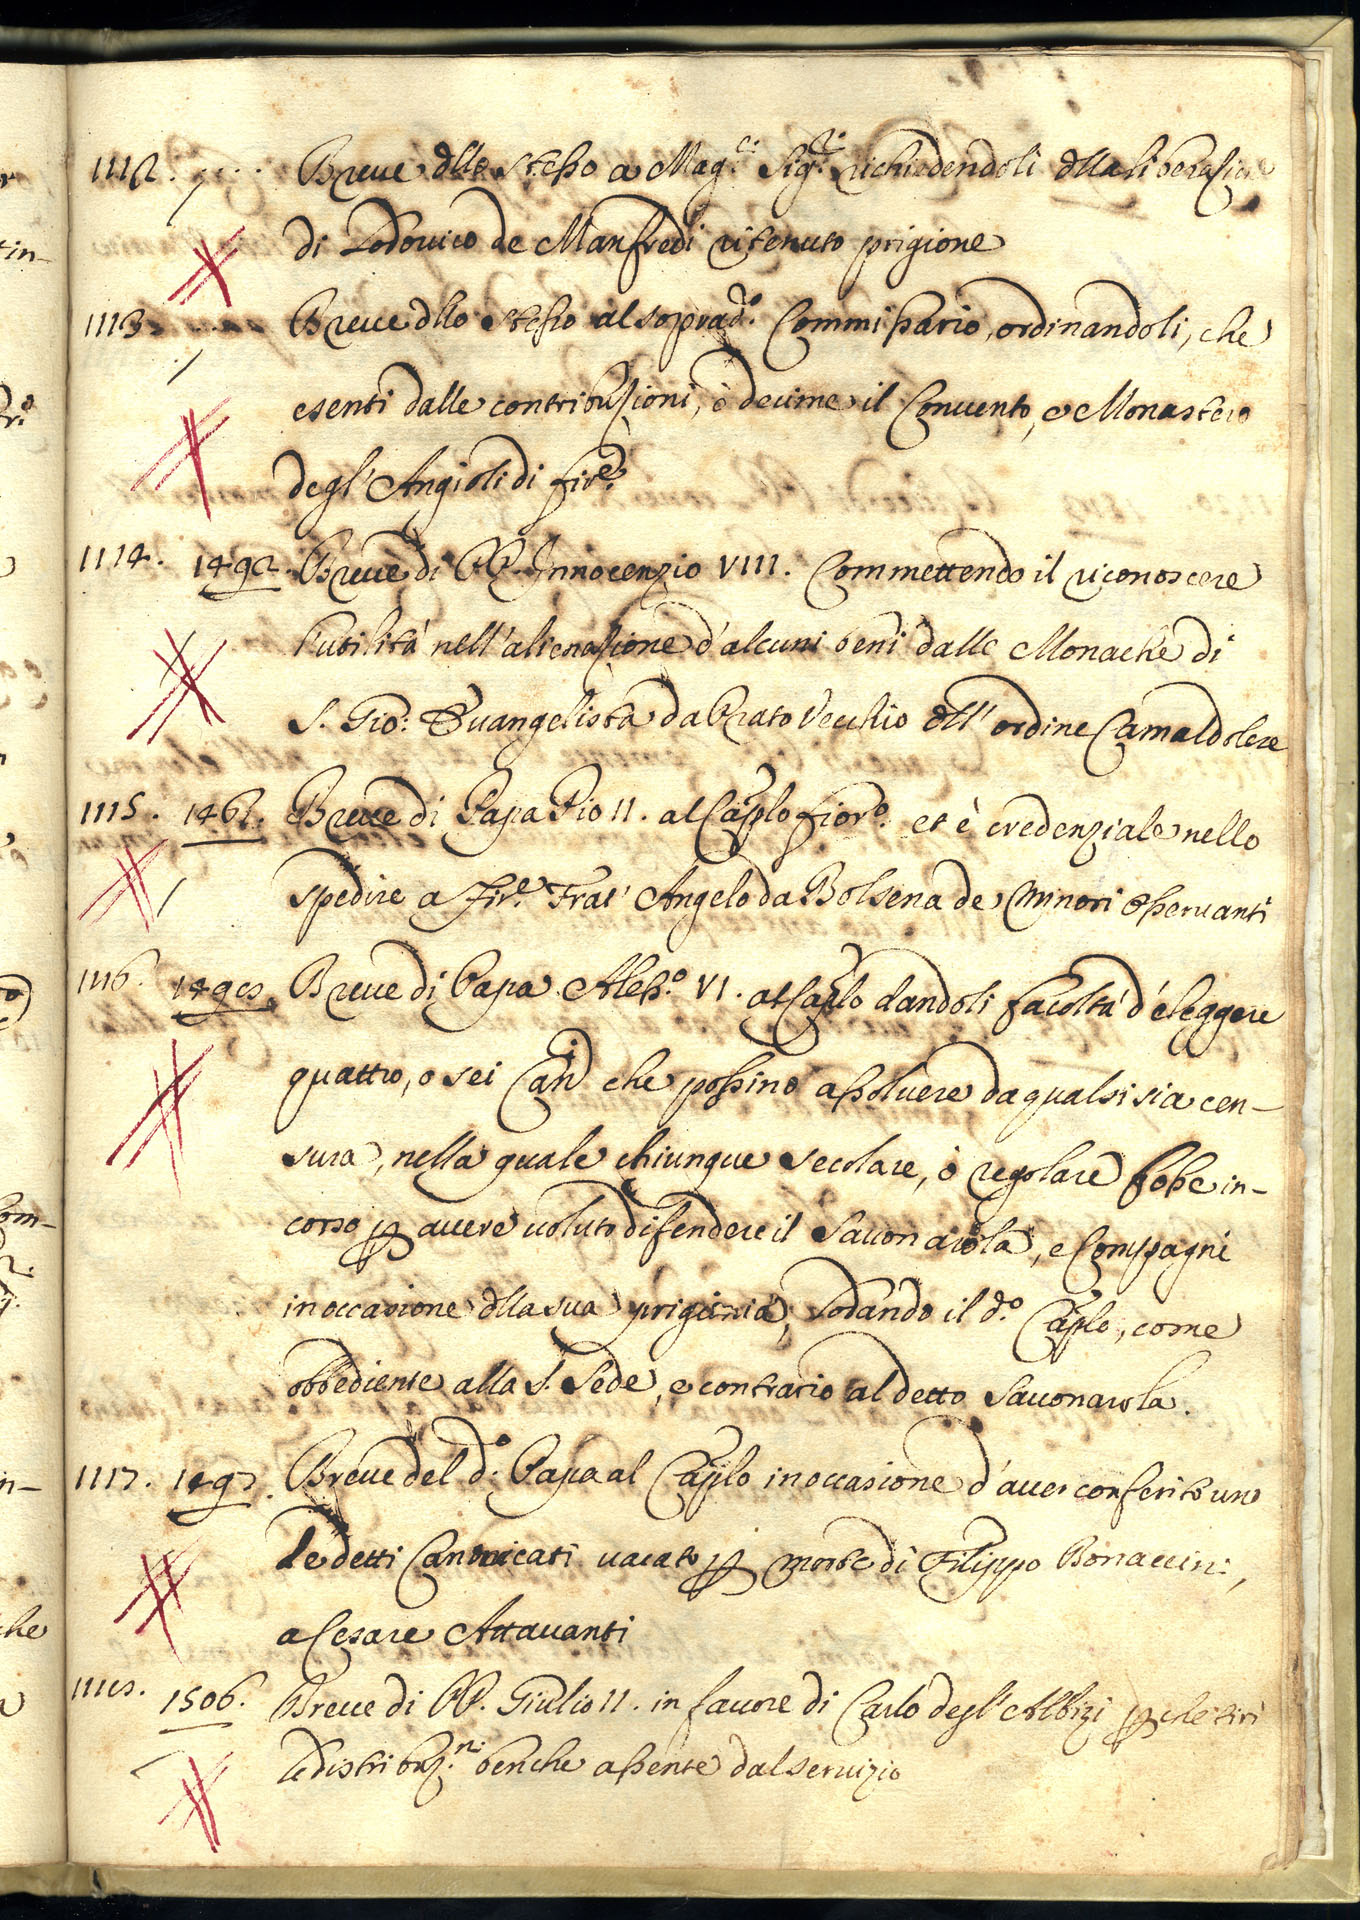 1112. .... Breve dllo stesso a Mag.ci Sig.ri richiedendoli dlla liberazione
di Lodovico de Manfredi ritenuto prigione
1113. Breve dllo stesso al soprad.o Commissario, ordinandoli, che
esenti dalle contribuzioni, ò decime il Convento, e Monastero
degl'Angioli di fir.e
1114. 1492. Breve di PP. Innocenzio VIII. Commettendo il riconoscere
l'utilità nell'alienazione d'alcuni beni dalle Monache di
S. Gio: Evangelista da Prato Vecchio dell' ordine Camaldolese
1115. 1461. Breve di Papa Pio II. al Caplo fior.o et è credenziale nello
spedire a Fir.e Frat' Angelo da Bolsena de Minori osservanti
1116. 1498. Breve di Papa Aless.o VI. al Caplo dandoli facoltà d'eleggere
quattro, o sei Can.ci che possino assolvere da qualsisia cen-
sura, nella quale chiunque secolare, ò regolare fosse in-
corso p avere voluto difendere il Savonarola, e Compagni
in occasione dlla sua prigionia, lodando il d.o Caplo, come
obbediente alla S. Sede, e contrario al detto Savonarola.
1117. 1497. Breve del d.o Papa al Caplo in occasione d'aver conferito uno
de detti Canonicati vacato p morte di Filippo Bonaccini,
a Cesare Attavanti
1118. 1506. Breve di PP. Giulio II. in favore di Carlo degl'Albizi p che tiri
le distribuz.ni benche assente dal servizio